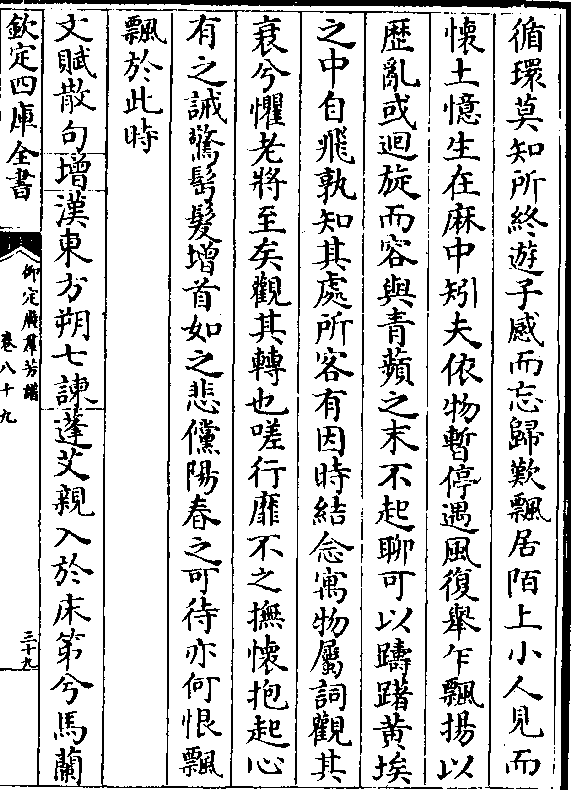 循環莫知所終遊子感而忘歸歎飄居陌上小人見而
懷土憶生在麻中矧夫依物暫停遇風復舉乍飄揚以
歴亂或迴旋而容與青蘋之末不起聊可以躊躇黄埃
之中自飛孰知其處所客有因時結念寓物屬詞觀其
衰兮懼老將至矣觀其轉也嗟行靡不之撫懷抱起心
有之誡驚髩髮增首如之悲儻陽春之可待亦何恨飄
飄於此時
文賦散句增漢東方朔七諫蓬艾親入於床第兮馬蘭
欽定四庫全書
御定廣羣芳譜
卷八十九
三十九